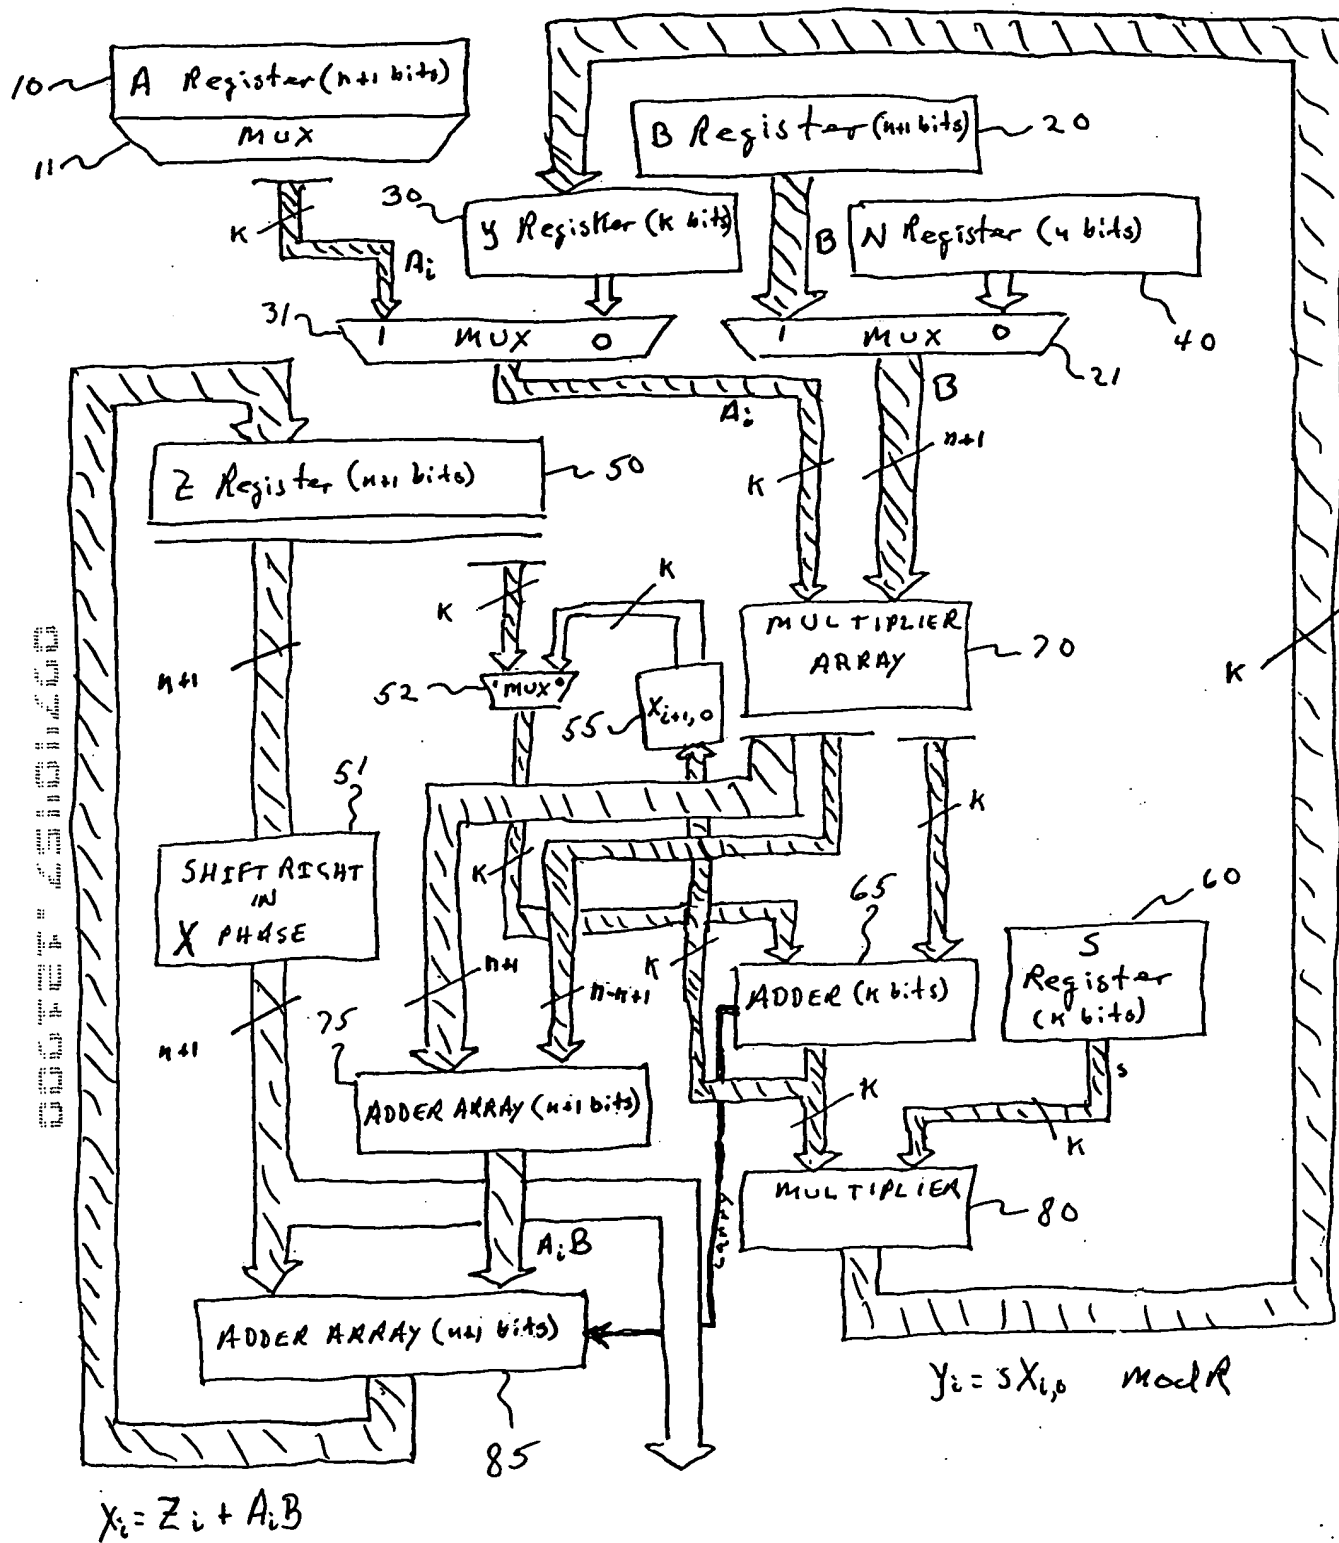 A Register (n+1 bits)
10
MUX
11
B Register (n+1 bits)
20
K
Ai
30
y Register (K bits)
B
N Register (n bits)
40
31
1 MUX 0
1 MUX 0
21
Ai
B
K
n+1
Z Register (n+1 bits)
50
K
K
n+1
52
1 MUX 0
55
Xi+1,0
MULTIPLIER
ARRAY
70
K
51
SHIFT RIGHT
IN
X PHASE
K
K
65
60
n+1
n-k+1
K
ADDER (K bits)
S
Register
(K bits)
n+1
75
ADDER ARRAY (n+1 bits)
K
s
K
MULTIPLIER
80
CARRY
AiB
ADDER ARRAY (n+1 bits)
85
yi = sXi,0 mod R
Xi = Zi + AiB